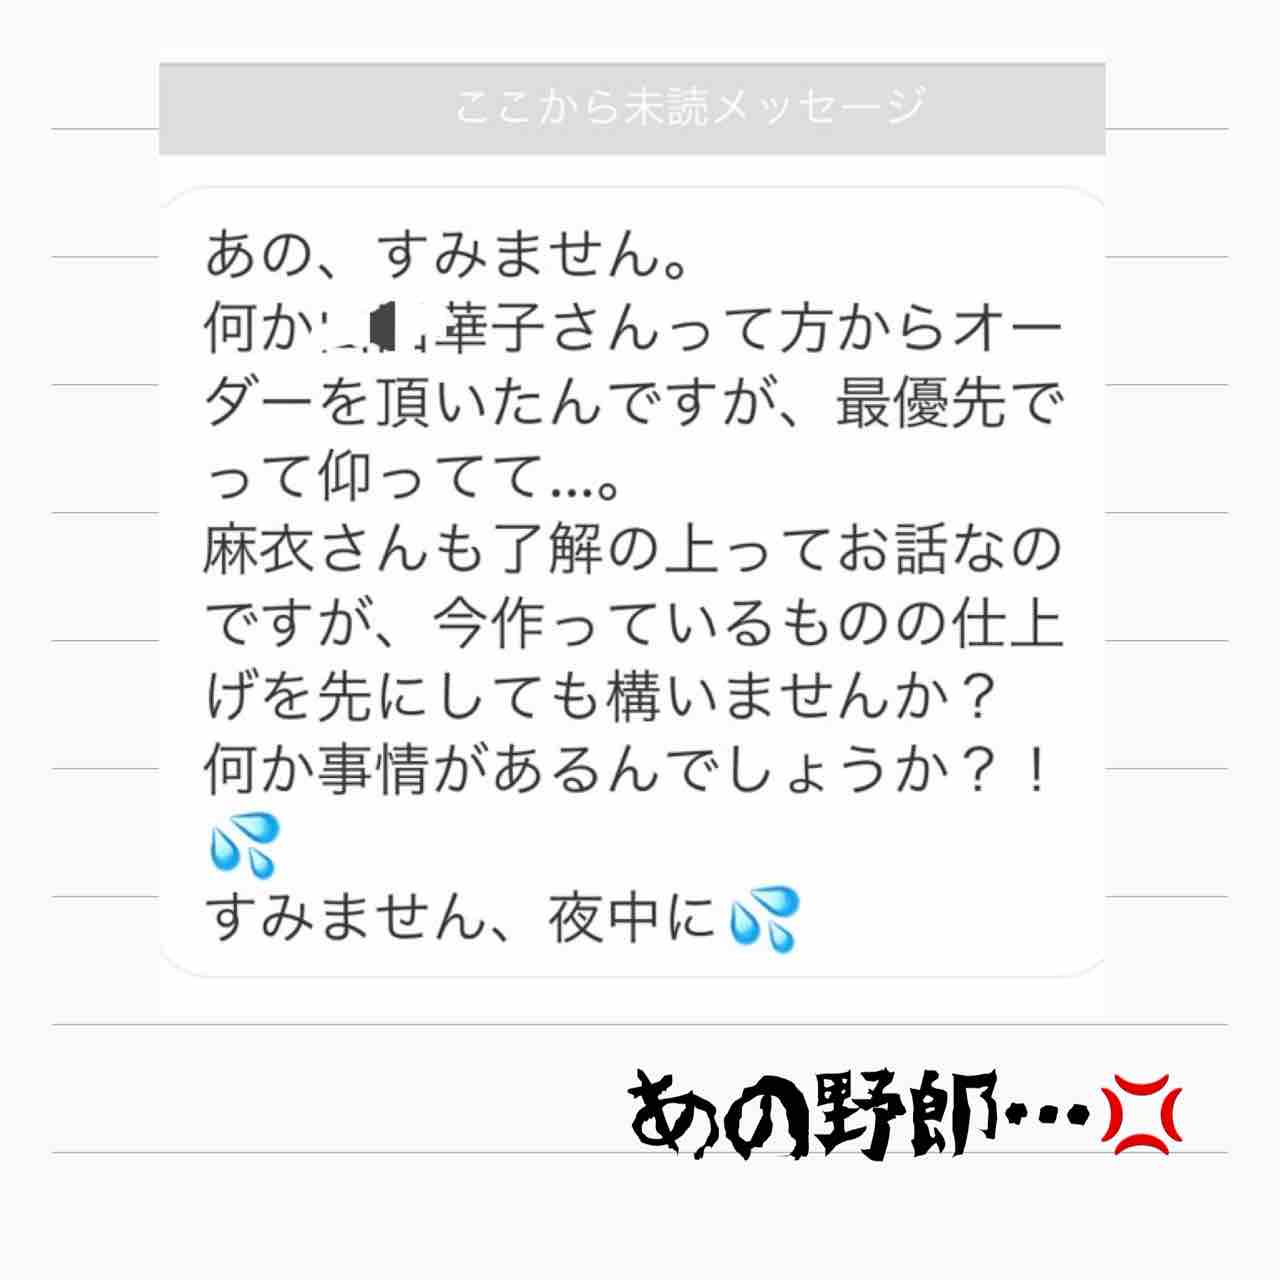 ここから未読メッセージ
あの、すみません。
何か華子さんって方からオー
ダーを頂いたんですが、最優先で
って仰ってて…。
麻衣さんも了解の上ってお話なの
ですが、今作っているものの仕上
げを先にしても構いませんか？
何か事情があるんでしょうか？！
💦
すみません、夜中に💦
あの野郎…💢